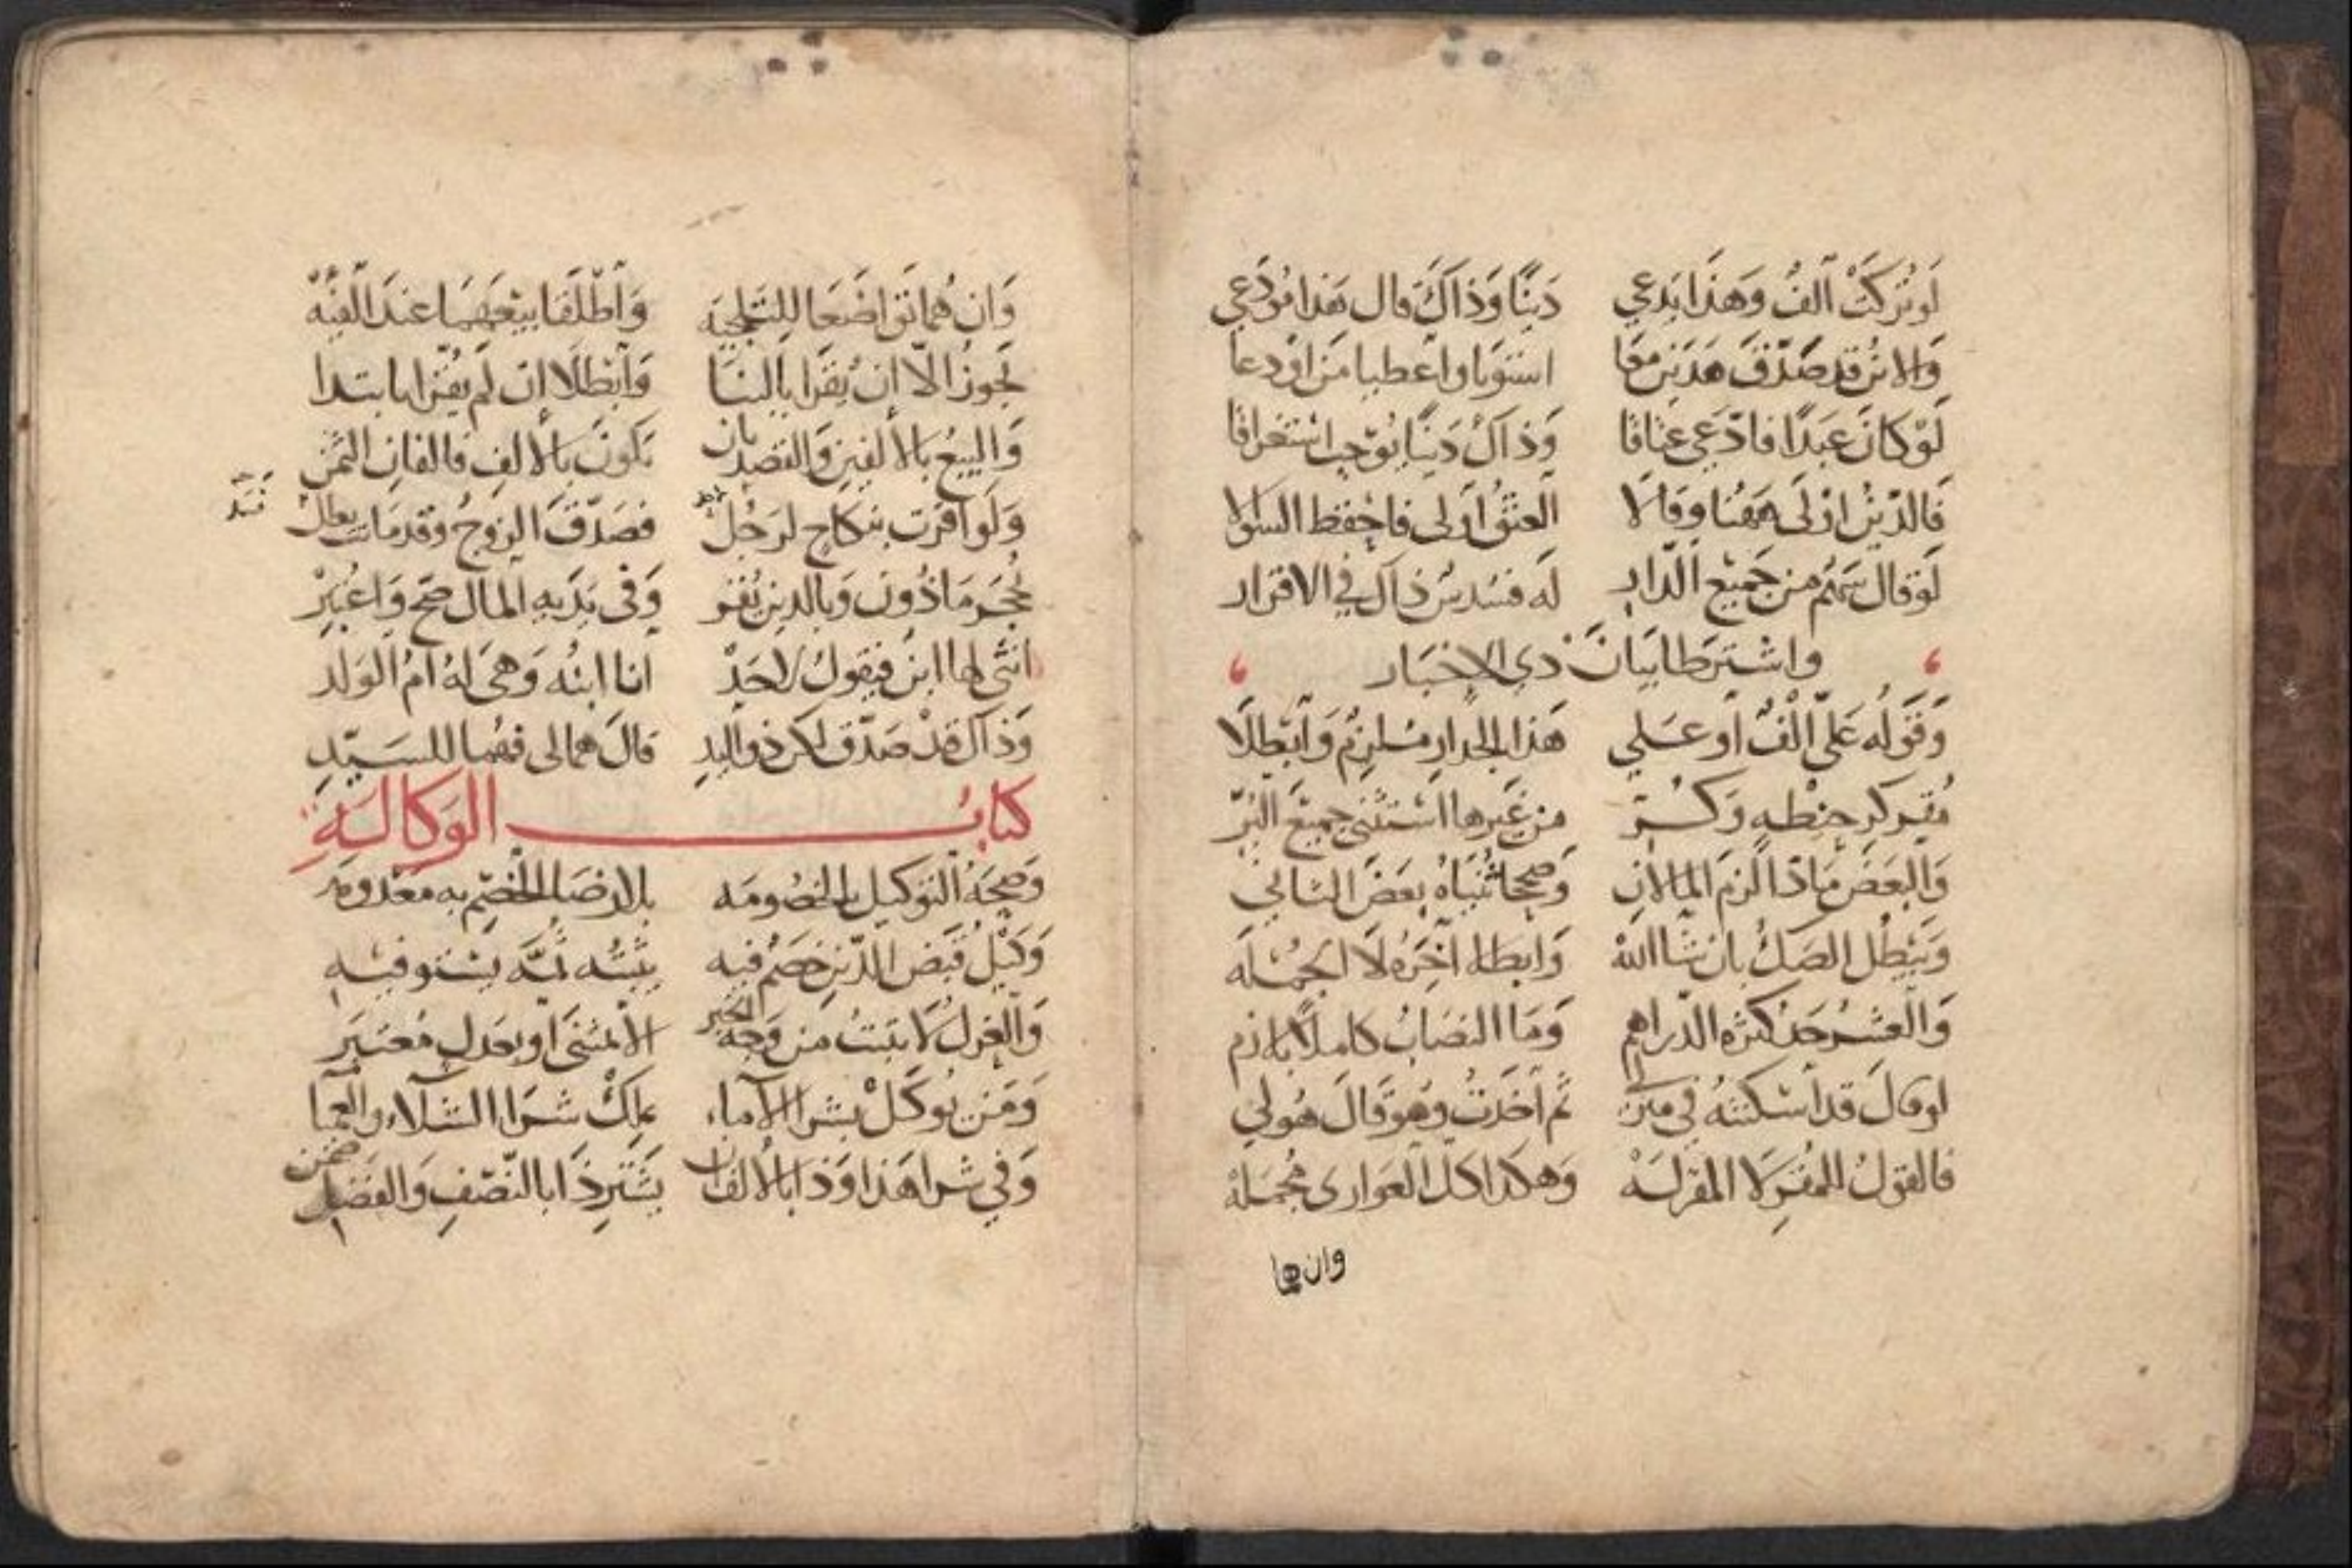 لَو تُرِكَتْ اَلفٌ وَهذَا يَدعِي دَينًا وَذاكَ قال هَذا مُودَعِي
وَالابنُ قد صَدَّقَ هَذَينِ معَا استَويَا واعطيا مَن اودعا
لَوْ كانَ عَبدًا فادّعَي عتاقا وَذاكَ دَينًا يُوجب استغراقا
فَالدّينُ اوْلَى هَهُنا وَقالا العتقُ اَولى فاحفظ السؤلا
لَو قال سَهمٌ من جَميع الدّار لَه فسُدسُ ذاك في الاقرار
واشترطا بيَانَ ذي الاخبَار
وَقَولُه عَلَيّ الْفٌ او عَلي هَذا الجدارِ مُلزِمٌ وَابْطلَا
مُقر كر حِنطه وَكُر من غَيرها استَثنى جميعَ البُرّ
وَالبعَض مَا ذا الزم المالان وَصححا ثُنياهُ بعَضَ الثاني
وَيَبْطُل الصَكُّ بان شا الله وَابطلا آخِرَهُ لا الجُمله
وَالعشرُ حَدُّ كثرة الدّراهم وَمَا النصَابُ كاملًا بلازم
او قالَ قد اسْكنتهُ في منزل ثم اخَذتُ وهوَ قالَ هُو لي
فالقولُ للمُقرِ لا المقَر لَهْ وَهكذا كل العَوارى مُجمَلهْ
وان هما
وَان هُما تَواضَعا للتَلجِيَه وَاطْلَقا بيَعَهما عندَ الفِئَهْ
يَجوزُ الّا ان يُقِرّا بالبنَا وَابْطلَا ان لَم يُقرا بابتدا
وَالبيعُ بالألفينِ وَالقصد بان يَكونَ بالالفِ فالفانِ الثَمن
وَلَو اقرَّت بنكاحٍ لرَجُلْ فصَدّقَ الزوجُ وَقد مَاتت بطل
حُجِرَ مَاذُون وَبالدين يُقر وَفى يَدَيهِ المالُ صَحّ وَاعتُبِرْ
انثى لها ابن فيقولُ لاحَدْ انا ابنُه وَهىَ لهُ امُ الوَلد
وَذاكَ قدْ صَدّق لكن ذو اليدِ قالَ هما لى فهُما للسَيّدِ
كتابُ الوَكالَةِ
وَصِحَةُ التوكيل بالخصُومَه بلا رضَا الخصمِ به معدومَه
وَكيلُ قَبَض الدّين خصمٌ فيه يثبتُه ثمَّه يستوفيهِ
وَالعزل لا يثبتُ من وَجه الخبر الا بمثنى او بعَدلٍ معُتبَر
وَمَن يوَكَلْ بشرا الاماء يملكْ شرَا الشلاء والعميا
وَفي شرا هَذا وَذا بالألف ان يَشترِ ذا بالنّصفِ وَالفضل ضمن